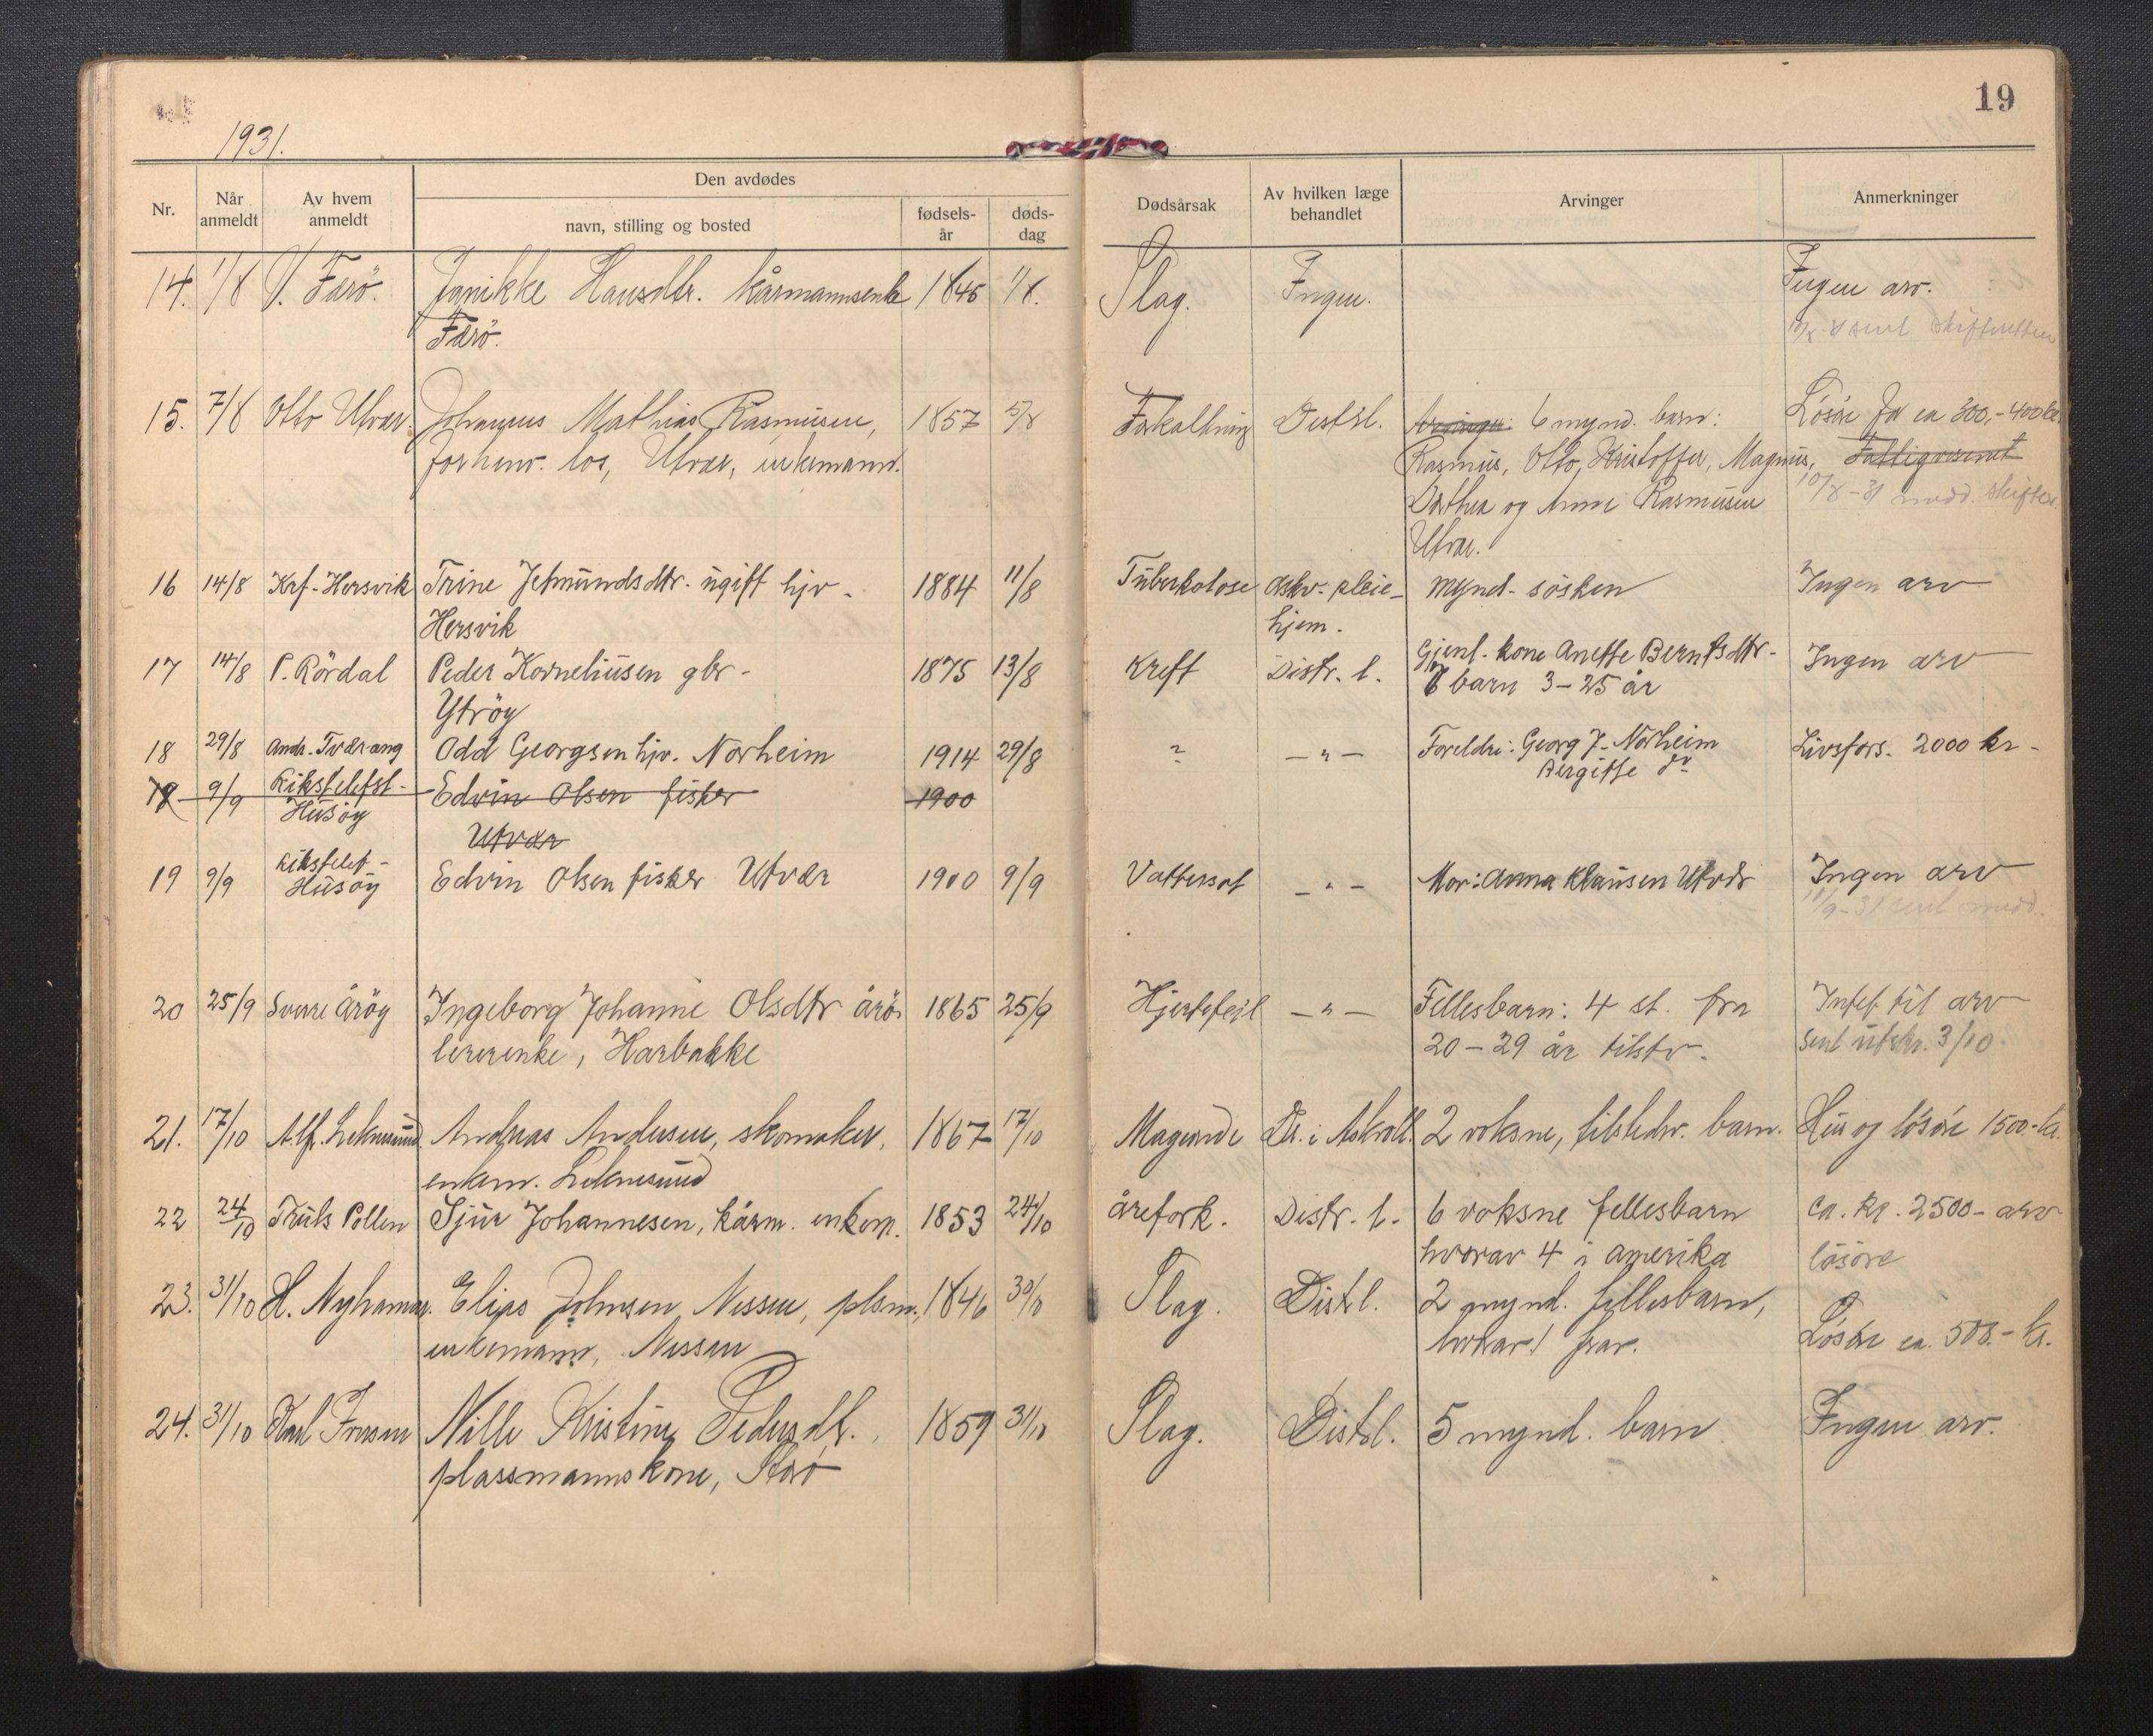 19
1931.
Nr. Når anmeldt Av hvem anmeldt Den avdødes navn, stilling og bosted fødsels-år døds-dag Dødsårsak Av hvilken læge behandlet Arvinger Anmerkninger
14. 1/8 V. Færö. Janikke Hansdtr. kårmannsenke 1845 1/8. Slag. Ingen. Ingen arv.
Færö. sent skifteretten
15. 7/8 Otto Utvær. Johannes Mathias Rasmusen, 1857 5/8 Forkalkning Distr.l. Arvinger: 6 mynd. barn: Lösöre for ca 300,- 400 kr.
forhenv. los, Utvær, enkemann. Rasmus, Otto, Kristoffer, Magnus, Fattigvesenet
Dorthea og Anne Rasmusen 10/8-31 medd. skifter.
Utvær.
16 14/8 Krf. Hersvik Trine Jetmundsdtr. ugift hjv. 1884 11/8 Tuberkolose Askv. pleie- mynd. sösken Ingen arv
Hersvik hjem.
17 14/8 P. Rördal Peder Korneliusen gbr. 1875 13/8 Kreft Distr. l. Gjenl. kone Anette Berntsdtr. Ingen arv
Ytröy 7 barn 3-25 år
18 29/8 Andr. Tværang Odd Georgsen hjv. Norheim 1914 29/8 ? -"- Foreldre: Georg J. Norheim Livsfors. 2000 kr.
Bergitte do
19 9/9 Rikstelefst. Edvin Olsen fisker 1900
Husöy Utvær
19 9/9 Rikstelef. Husöy Edvin Olsen fisker Utvær 1900 9/9 Vattersot -"- Mor: Anna Klausen Utvær Ingen arv
11/9-31 sent medd.
20 25/9 Sverre Åröy Ingeborg Johanne Olsdtr årö. 1865 25/9 Hjertefeil -"- Fellesbarn: 4 st. fra Intet til arv
lererenke, Harbakke 20-29 år tilstv. sent utskr. 3/10.
21. 17/10 Alf. Leknesund Andreas Andersen, skomaker, 1867 17/10 Magesmerte Dr. i Askvoll. 2 voksne, tilstedv. barn. Hus og lösöre 1500.- kr.
enkem. Leknesund
22 24/10 Truls Pollen Sjur Johannesen, kårm. enkem. 1853 24/10 årefork. Distr. l. 6 voksne fellesbarn ca. kr. 2500- arv
hvorav 4 i Amerika lösöre
23. 31/10 H. Nyhammer. Elias Johnsen Nessen, plsm., 1846 30/10 Slag. Distr.l. 2 mynd. fellesbarn,
enkemann, Nessen hvorav 1 frav. Lösöre ca. 500.- kr.
24. 31/10 Karl Iversen Nille Kristine Pedersdt. 1859 31/10 Slag. Distr.l. 5 mynd. barn Ingen arv.
plassmannskone, Storö